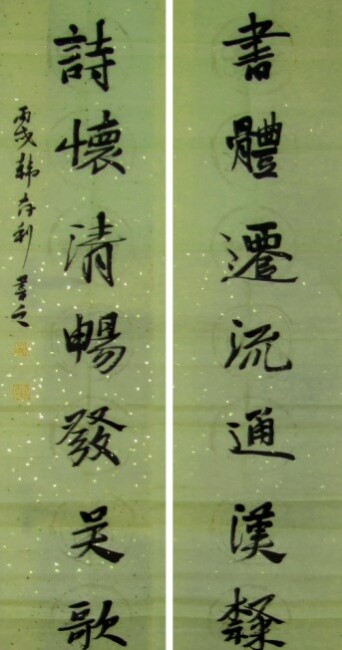 書體遷流通漢隸
詩懷清暢發吴歌
丙戌韩存利書之